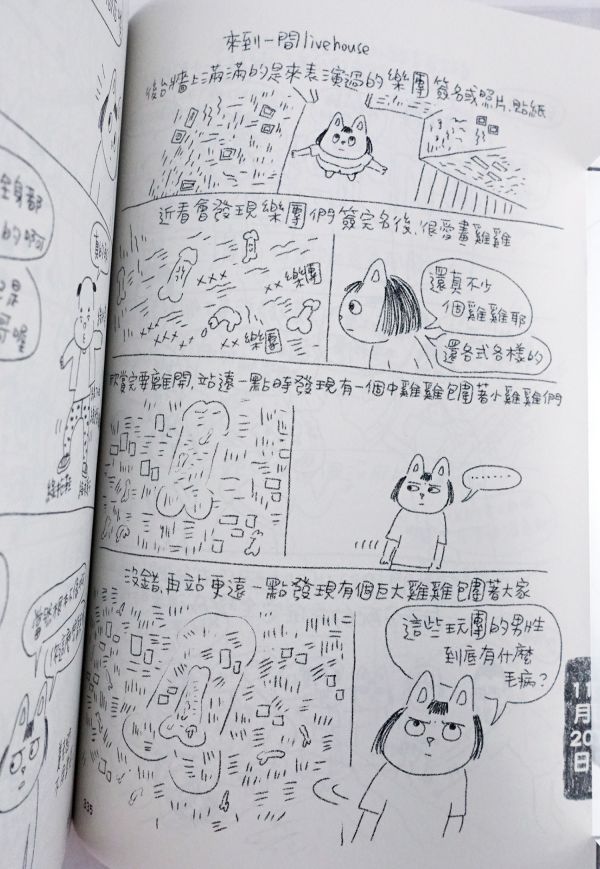 來到一間livehouse
後台牆上滿滿的是來表演過的樂團簽名或照片、貼紙
近看會發現樂團們簽完名後、很愛畫雞雞
×××樂團
××樂團
還真不少
個雞雞耶
還各式各樣的
欣賞完要離開,站遠一點時發現有一個中雞雞包圍著小雞雞們
......
沒錯,再站更遠一點發現有個巨大雞雞包圍著大家
這些玩團的男性
到底有什麼
毛病?
11
月
20
日
335
全身都
的啊